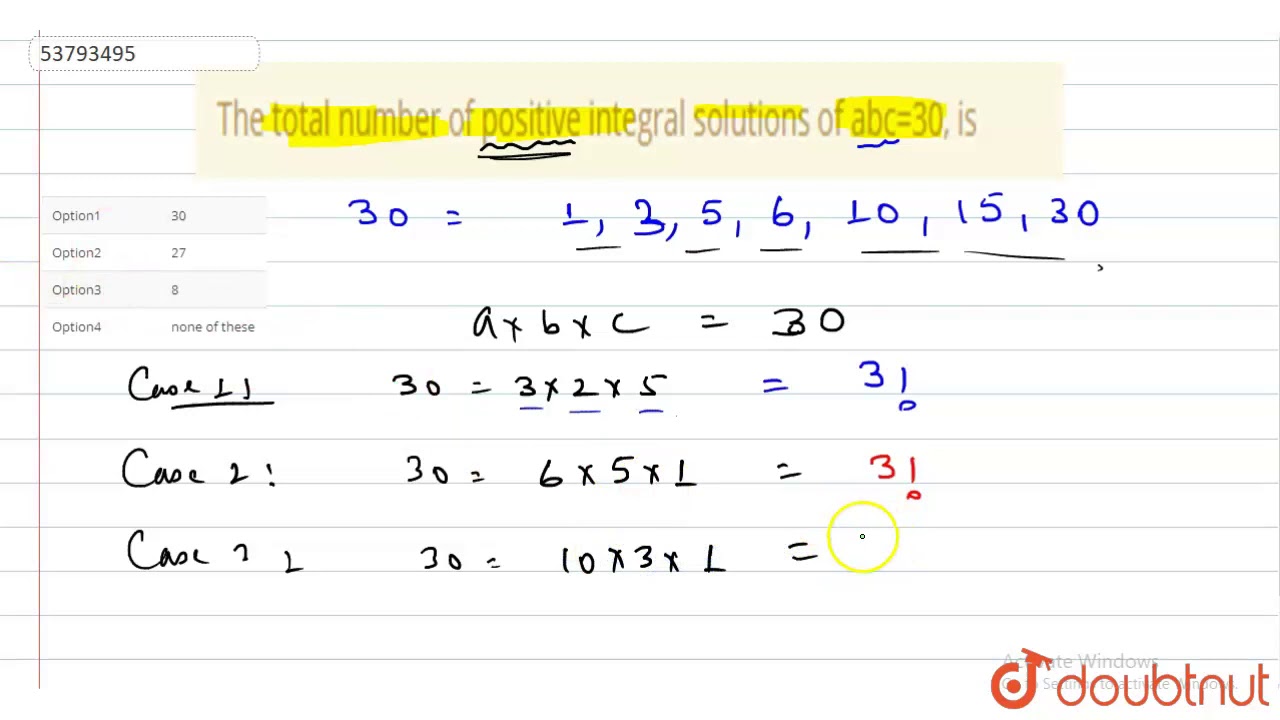 53793495
The total number of positive integral solutions of abc=30, is
Option1 30
Option2 27
Option3 8
Option4 none of these
30 = 1, 3, 5, 6, 10, 15, 30
a x b x c = 30
Case 1 30 = 3 x 2 x 5 = 3!
Case 2: 30 = 6 x 5 x 1 = 3!
Case 3 30 = 10 x 3 x 1 =
Activate Windows
Go to Settings to activate Windows.
doubtnut